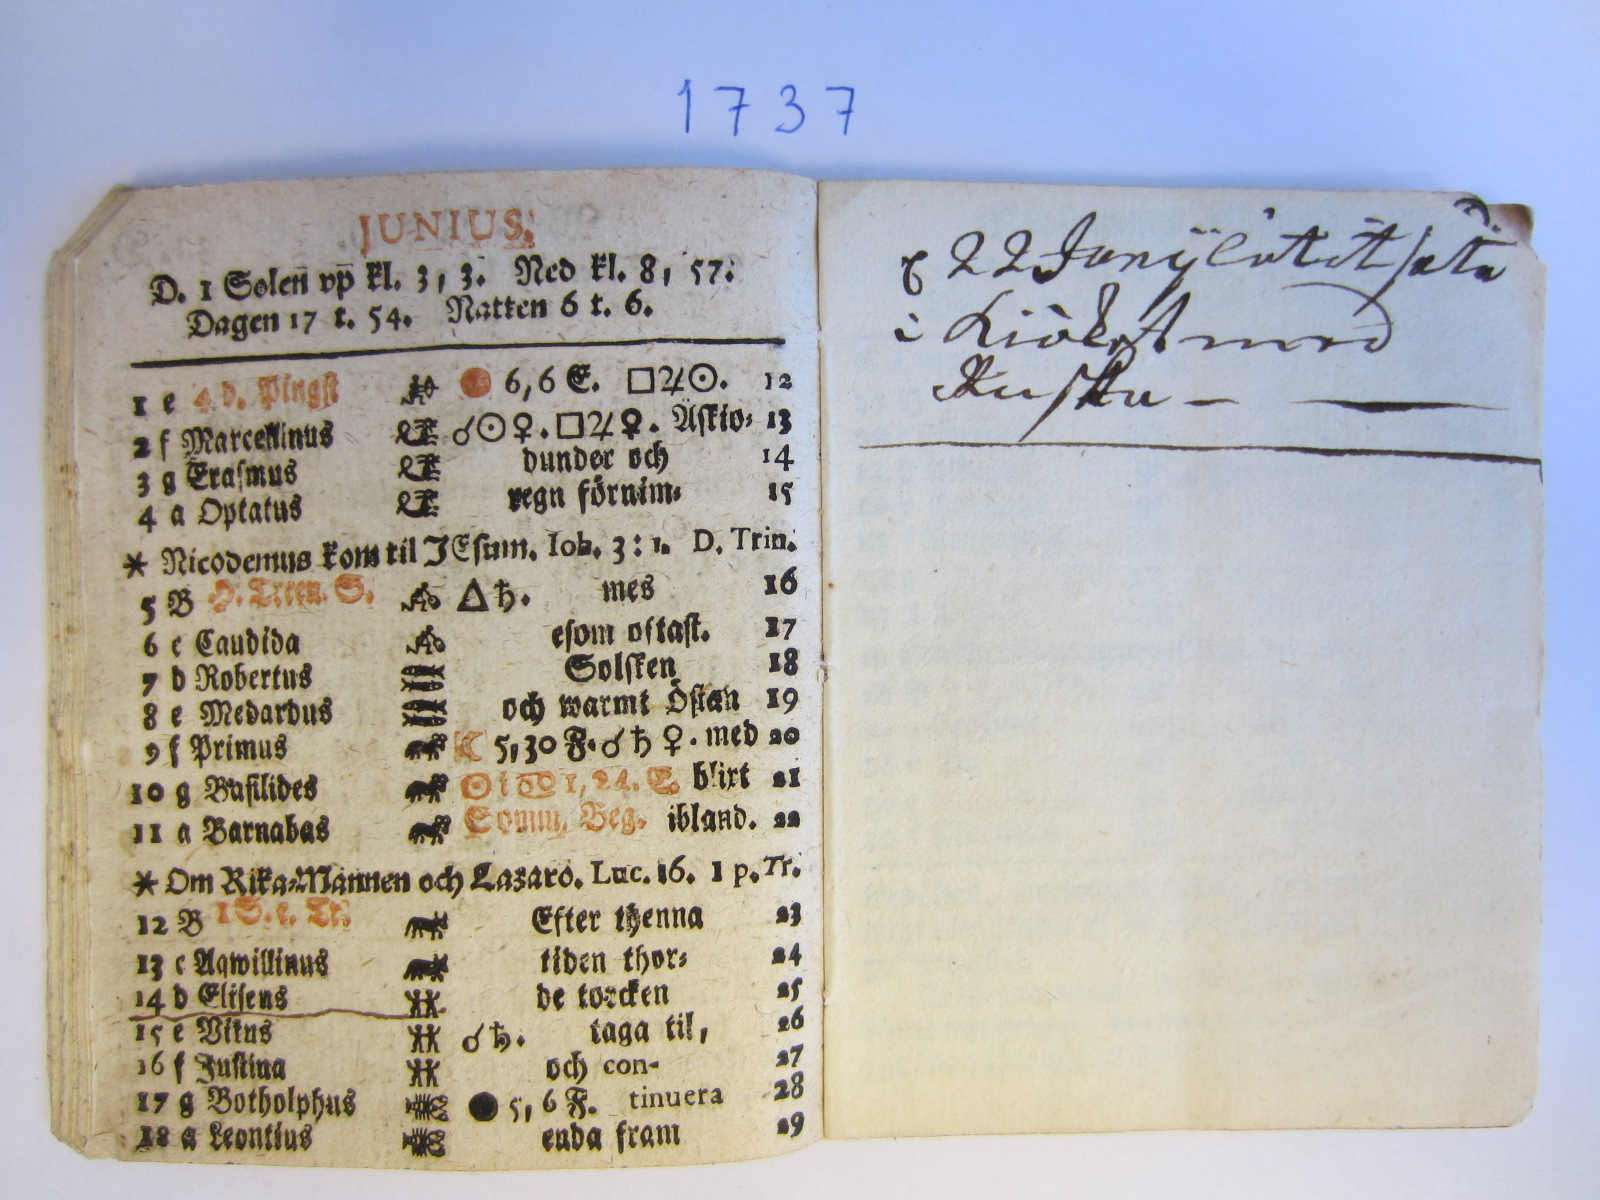 1737
JUNIUS.
D. 1 Solen vp kl. 3, 3. Ned kl. 8, 57.
Dagen 17 t. 54. Natten 6 t. 6.
1 e 4 d. Pingst 6, 6 E. □♃☉. 12
2 f Marcellinus ☌☉♀. □♃♀. Åskio- 13
3 g Erasmus dunder och 14
4 a Optatus regn förnim- 15
* Nicodemus kom til JEsum. Joh. 3: 1. D. Trin.
5 B H. Trien. S. △♄. mes 16
6 c Candida esom oftast. 17
7 d Robertus Solsken 18
8 e Medardus och warmt Östan 19
9 f Primus 5, 30 F. ☌♄♀. med 20
10 g Basilides ☉ i ♋ 1, 24. E. blixt 21
11 a Barnabas Somm. Beg. ibland. 22
* Om Rika-Mannen och Lazaro. Luc. 16. 1 p. Tr.
12 B 1 S. e. Tr. Efter thenna 23
13 c Aqwillinus tiden thor- 24
14 d Eliseus de torcken 25
15 e Vitus ☌♄. taga til, 26
16 f Justina och con- 27
17 g Botholphus 5, 6 F. tinuera 28
18 a Leontius enda fram 29
22 Junÿ
i med